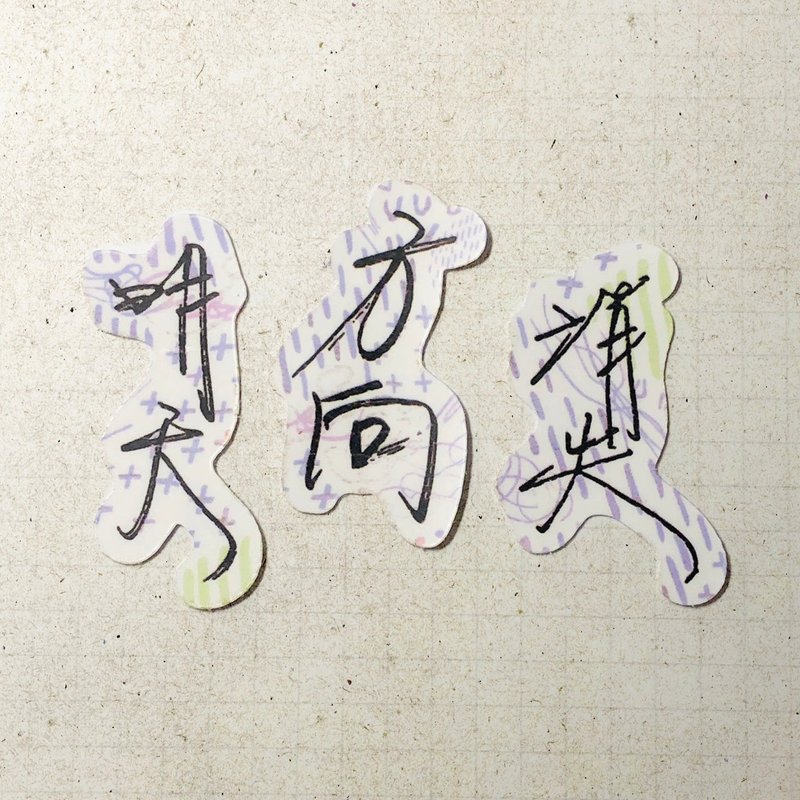 明天
方向
消失